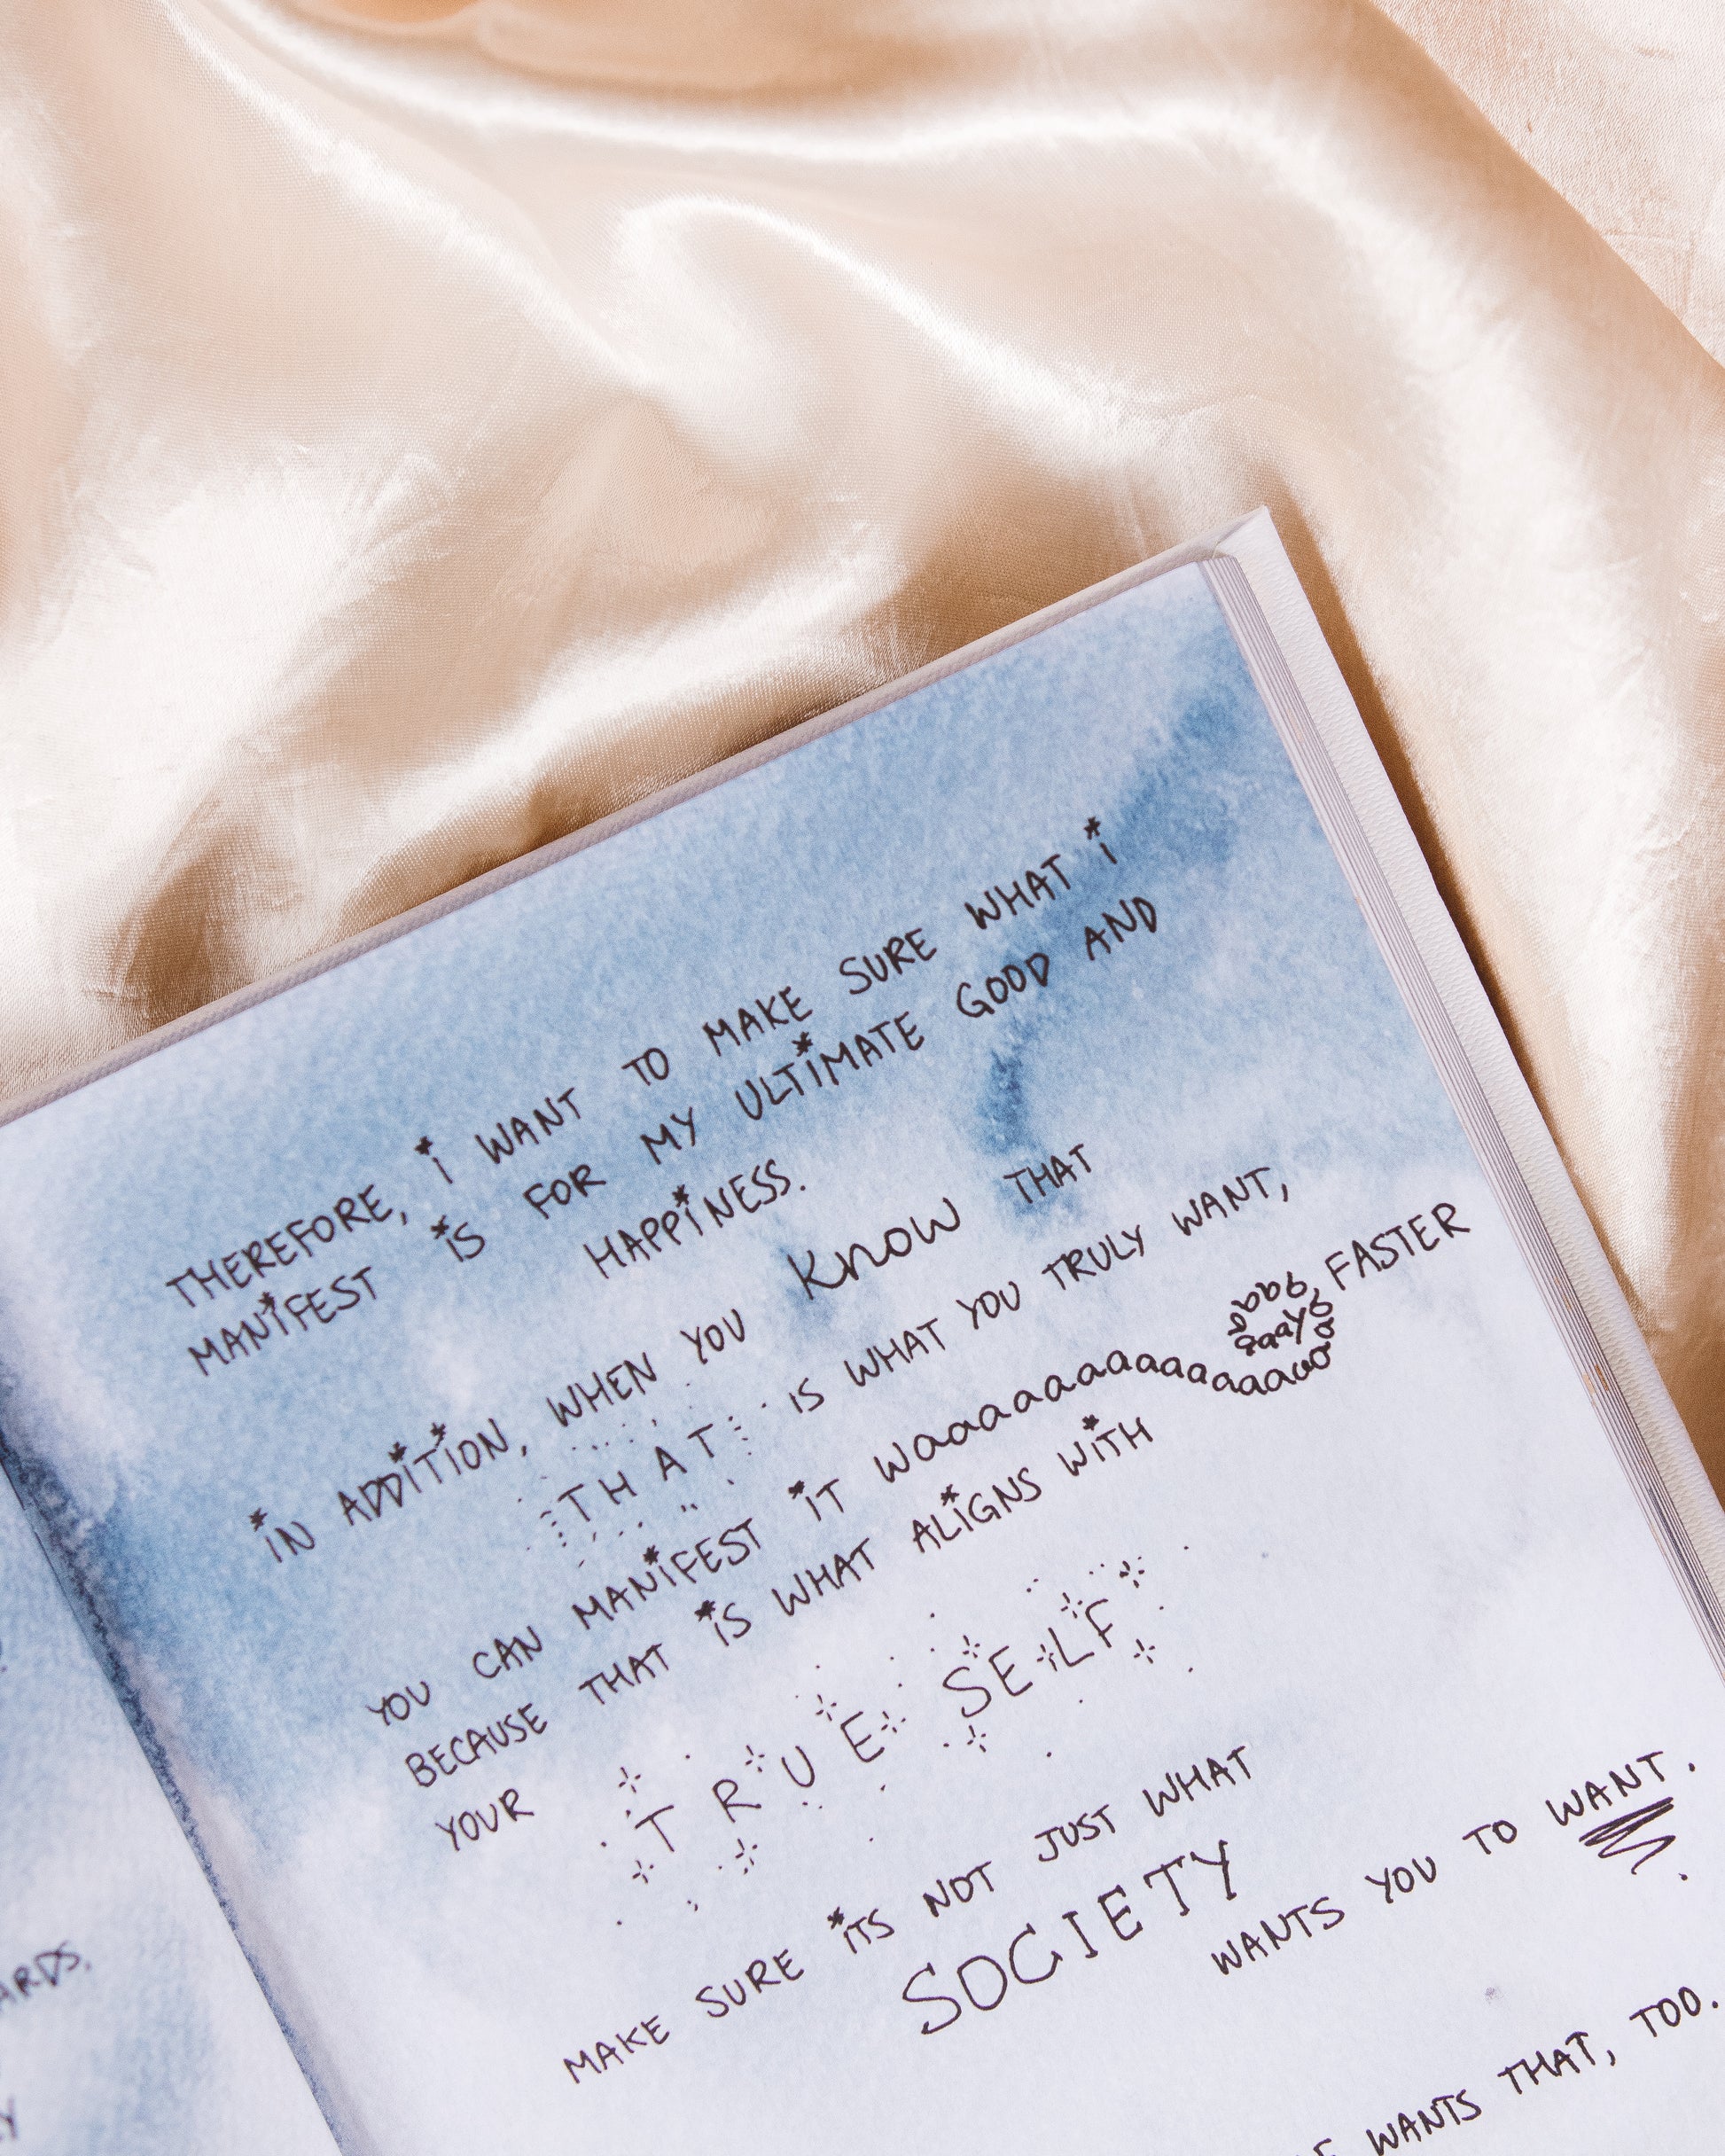 THEREFORE, i WANT TO MAKE SURE WHAT i
MANiFEST iS FOR MY ULTiMATE GOOD AND
HAPPiNESS.
iN ADDiTiON, WHEN YOU Know THAT
THAT iS WHAT YOU TRULY WANT,
YOU CAN MANiFEST iT FASTER
BECAUSE THAT iS WHAT ALiGNS WiTH
YOUR TRUE SELF
MAKE SURE iTS NOT JUST WHAT
SOCIETY WANTS YOU TO WANT.
WANTS THAT, TOO.